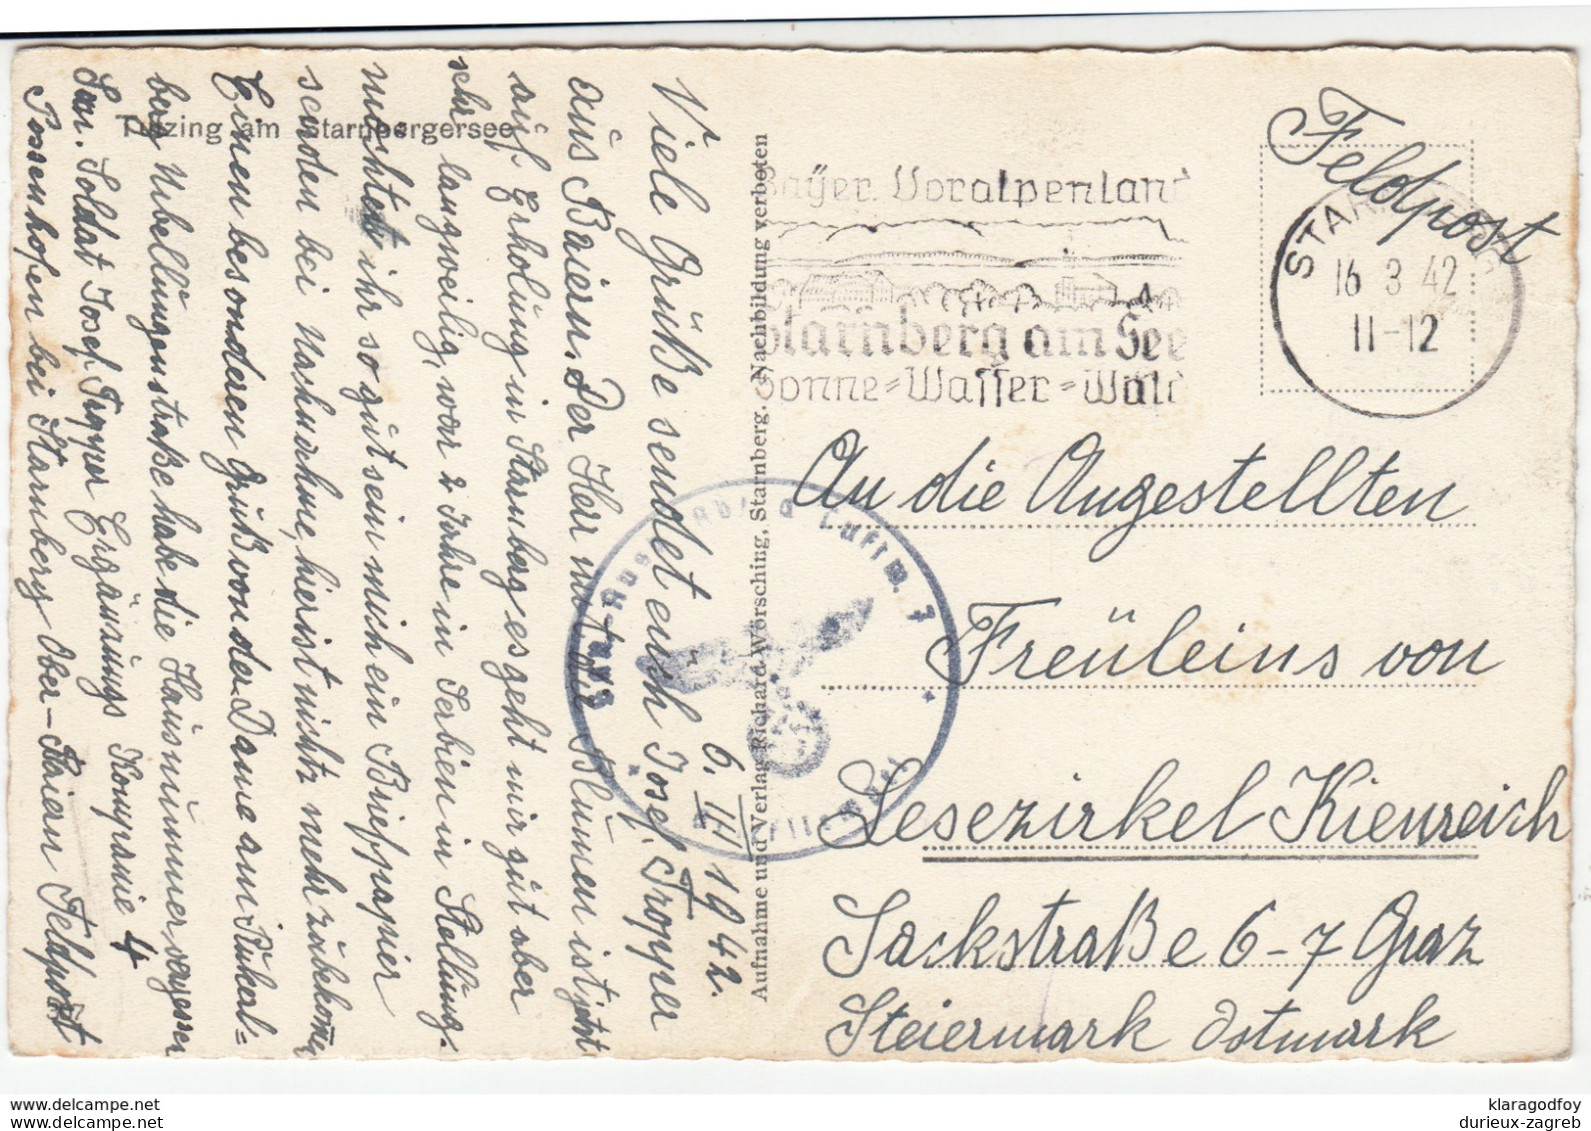 Tutzing am Starnbergersee
Viele Grüße sendet euch Josef Tropper
6. III 1942.
aus Baiern. Der Herr mit den Blumen ist jetzt
auf Erholung in Starnberg es geht mir gut aber
sehr langweilig, vor 2 Jahre in Serbien in Stellung.
möchtet ihr so gut sein mich ein Briefpapier
senden bei Nachnahme, hier ist nichts mehr zubekomen
Einen besonderen Gruß von der Dame am Pult
bere Nibellungenstraße habe die Hausnummer vergessen
Soldat Josef Tropper Ergänzungs Kompanie 4
Possenhofen bei Starnberg Ober-Baiern Feldpost
Aufnahme und Verlag Richard Wörsching, Starnberg. Nachbildung verboten
Bayer. Voralpenland
Starnberg am See
Sonne=Wasser=Wald
Feldpost
STARNBERG
16 3 42
11-12
Luftw. 7
An die Angestellten
Freüleins von
Lesezirkel Kienreich
Sackstraße 6-7 Graz
Steiermark Ostmark
klaragodfoy
durieux-zagreb
www.delcampe.net
www.delcampe.net